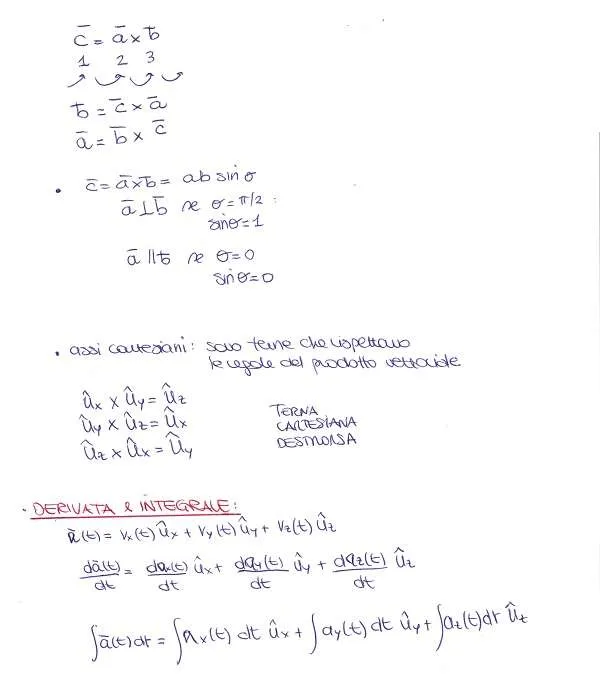 c̄ = ā x b̄
1 2 3
b̄ = c̄ x ā
ā = b̄ x c̄
• c̄ = ā x b̄ = ab sinσ
ā ⊥ b̄ se σ = π/2 :
sinσ = 1
ā // b̄ se σ = 0
sinσ = 0
• assi cartesiani: sono terne che rispettano
le regole del prodotto vettoriale
ûx x ûy = ûz
ûy x ûz = ûx
ûz x ûx = ûy
TERNA
CARTESIANA
DESTRORSA
• DERIVATA & INTEGRALE:
ā(t) = Vx(t) ûx + Vy(t) ûy + Vz(t) ûz
dā(t)/dt = dax(t)/dt ûx + day(t)/dt ûy + daz(t)/dt ûz
∫ā(t)dt = ∫ax(t) dt ûx + ∫ay(t) dt ûy + ∫az(t)dt ûz